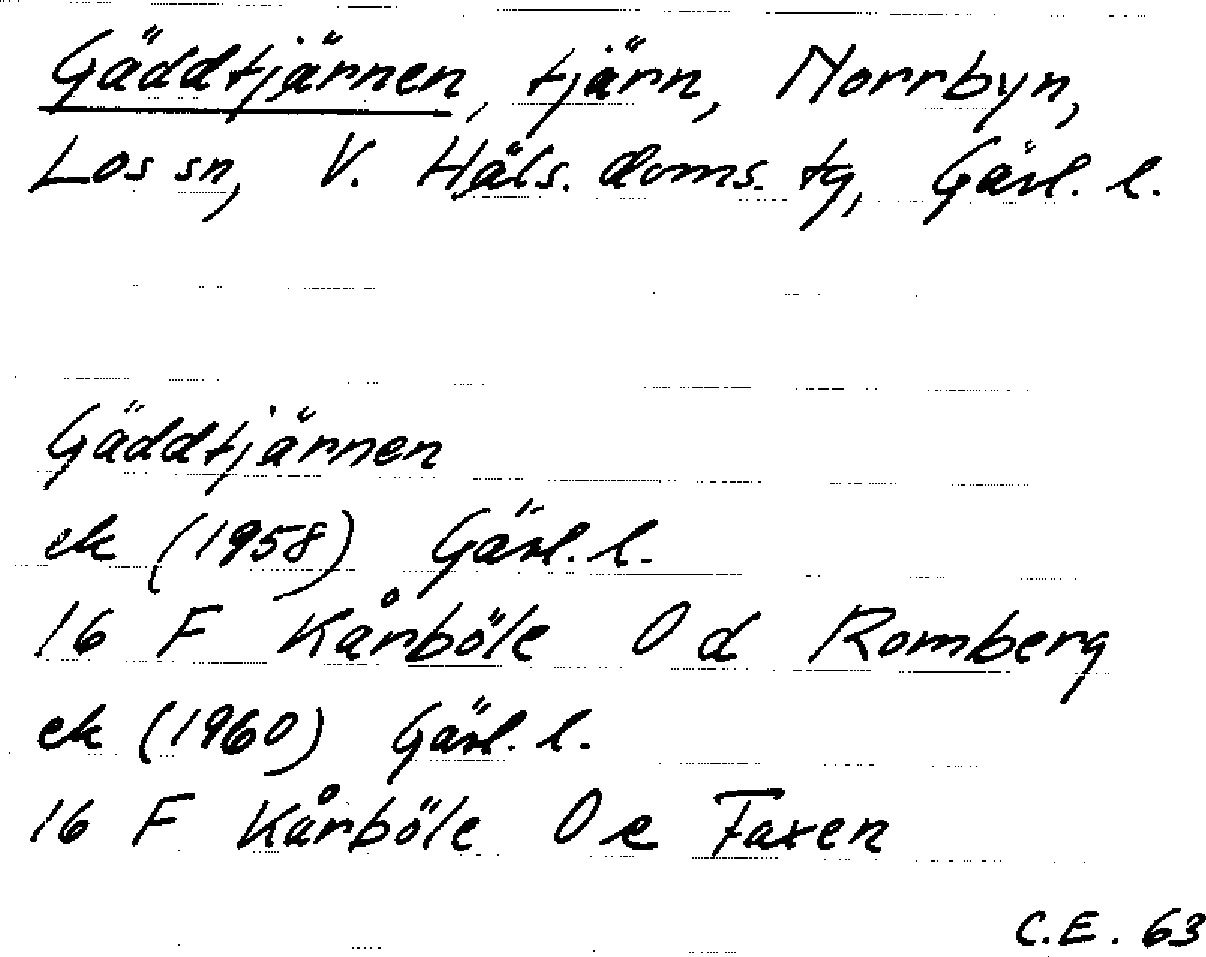 Gäddtjärnen, tjärn, Norrbyn,
Los sn, V. Häls. doms. tg, Gävl. l.
Gäddtjärnen
ek (1958) Gävl. l.
16 F Kårböle 0 d Romberg
ek (1960) Gävl. l.
16 F Kårböle 0 e Faxen
C.E. 63